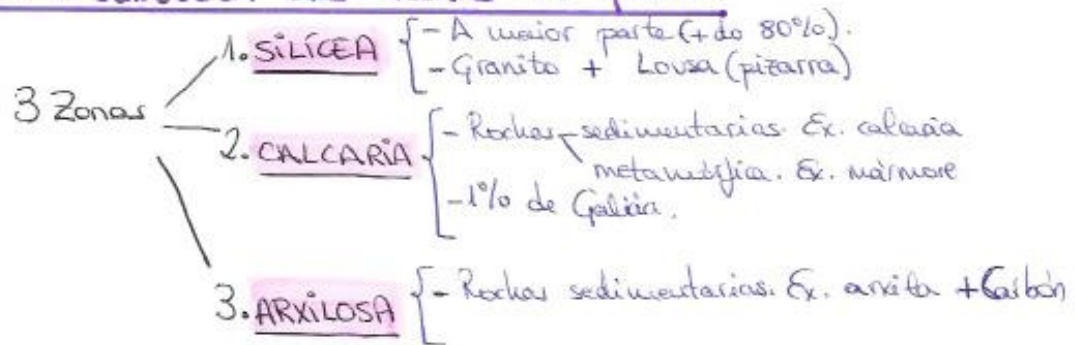 3 Zonas
1. SILÍCEA
- A maior parte (+ do 80%).
- Granito + Lousa (pizarra)
2. CALCARIA
- Rochas sedimentarias. Ex. calcaria
metamórfica. Ex. mármore
- 1% de Galicia.
3. ARXILOSA
- Rochas sedimentarias. Ex. arxila + Carbón